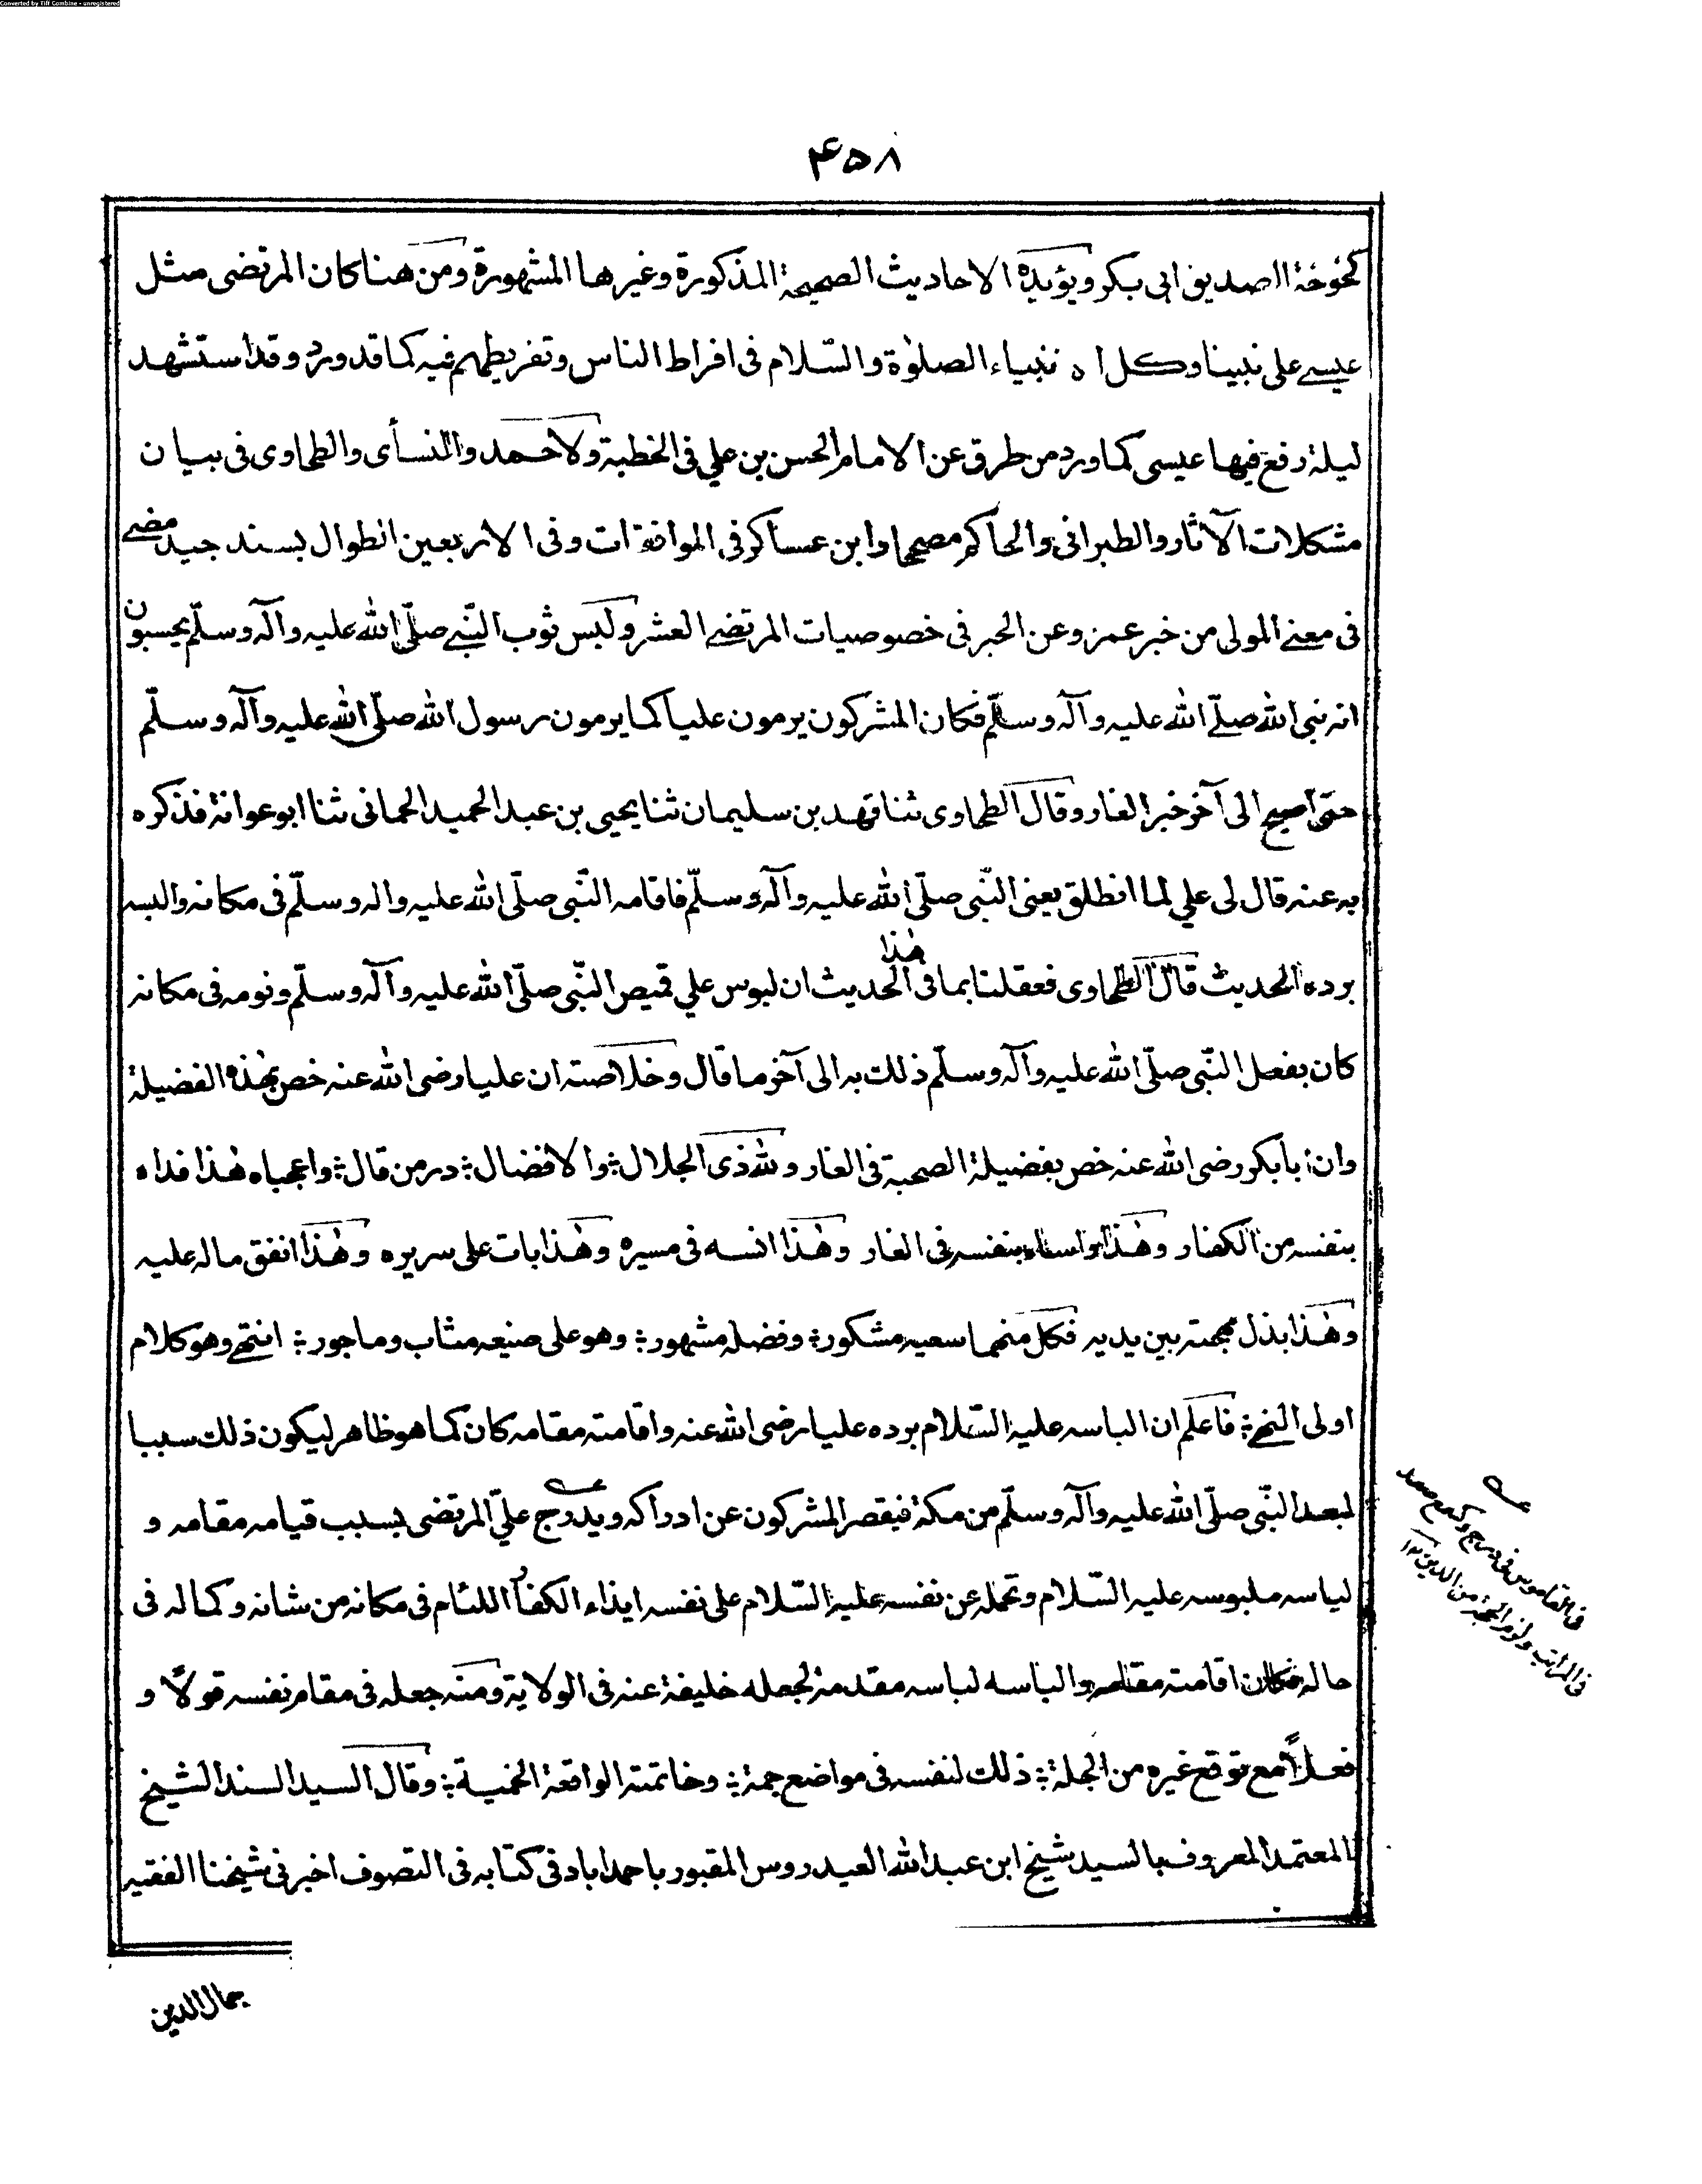 Converted by Tiff Combine - unregistered
۴۵۸
كخوخة الصديق ابى بكر ويؤيده الاحاديث الصحيحة المذكورة وغيرها المشهورة ومن هنا كان المرتضى مثل
عيسے على نبينا وكل الانبياء الصلوٰة والسّلام فى افراط الناس وتفريطهم فيه كما قد ورد وقد استشهد
ليلة رفع فيها عيسى كما ورد من طرق عن الامام الحسن بن علي فى الخطبة ولاحمد والنسأى والطحاوى فى بيان
مشكلات الآثار والطبرانى والحاكم مصححا وابن عساكر فى الموافقات وفى الاربعين الطوال بسند جيد مضے
فى معنے المولى من خبر عمرو عن الحبر فى خصوصيات المرتضے العشر ولبس ثوب النّبے صلّى الله عليه وآله وسلّم يحسبون
انه نبى الله صلّے الله عليه وآله وسلّم فكان المشركون يرمون عليا كما يرمون رسول الله صلّى الله عليه وآله وسلّم
حتى اصبح الى آخر خبر الغار وقال الطحاوى ثنا فهد بن سليمان ثنا يحيى بن عبد الحميد الحمانى ثنا ابو عوانة فذكره
به عنه قال لى علي لما انطلق يعنى النّبى صلّى الله عليه وآله وسلّم فاقامه النّبى صلّى الله عليه واله وسلّم فى مكانه والبسه
برده الحديث قال الطحاوى فعقلنا بما فى هٰذا الحديث ان لبوس علي قميص النّبى صلّى الله عليه وآله وسلّم ونومه فى مكانه
كان بفعل النّبى صلّى الله عليه وآله وسلّم ذلك به الى آخر ما قال وخلاصته ان عليا رضى الله عنه خص بهٰذه الفضيلة
وان ابابكر رضى الله عنه خص بفضيلة الصحبة فى الغار ولله ذى الجلال ؛ والافضال ؛ در من قال ؛ واعجباه هٰذا فداه
بنفسه من الكفار وهٰذا واساه بنفسه فى الغار وهٰذا انسه فى مسيره وهٰذا بات على سريره وهٰذا انفق ماله عليه
وهٰذا بذل مهجته بين يديه فكل منهما سعيه مشكور ؛ وفضله مشهور ؛ وهو على صنيعه مثاب وماجور ؛ انتهے وهو كلام
اولى النهے ؛ فاعلم ان الباسه عليه السّلام برده عليا رضى الله عنه واقامته مقامه كان كما هو ظاهر ليكون ذلك سببا
لبعد النّبى صلّى الله عليه وآله وسلّم من مكة فيقصر المشركون عن ادراكه ويدرج عليّ المرتضى بسبب قيامه مقامه و
لباسه ملبوسه عليه السّلام وتحمله عن نفسه عليه السّلام على نفسه ايذاء الكفار اللئام فى مكانه من شانه وكماله فى
حاله فكان اقامته مقامه والباسه لباسه مقدمة لجعله خليفة عنه فى الولاية ومنه جعله فى مقام نفسه قولًا و
فعلاً مع توقع غيره من الجلة ؛ ذلك لنفسه فى مواضع جمة ؛ وخاتمته الواقعة الخمية ؛ وقال السيد السند الشيخ
المعتمد المعروف بالسيد شيخ ابن عبد الله العيدروس المقبور باحمداباد فى كتابه فى التصوف اخبرنى شيخنا الفقيه
عـه
فى القاموس فى درج وكسمع صعد
فى المراتب ولزم المحجة من الدين ١٢
جمال الدين